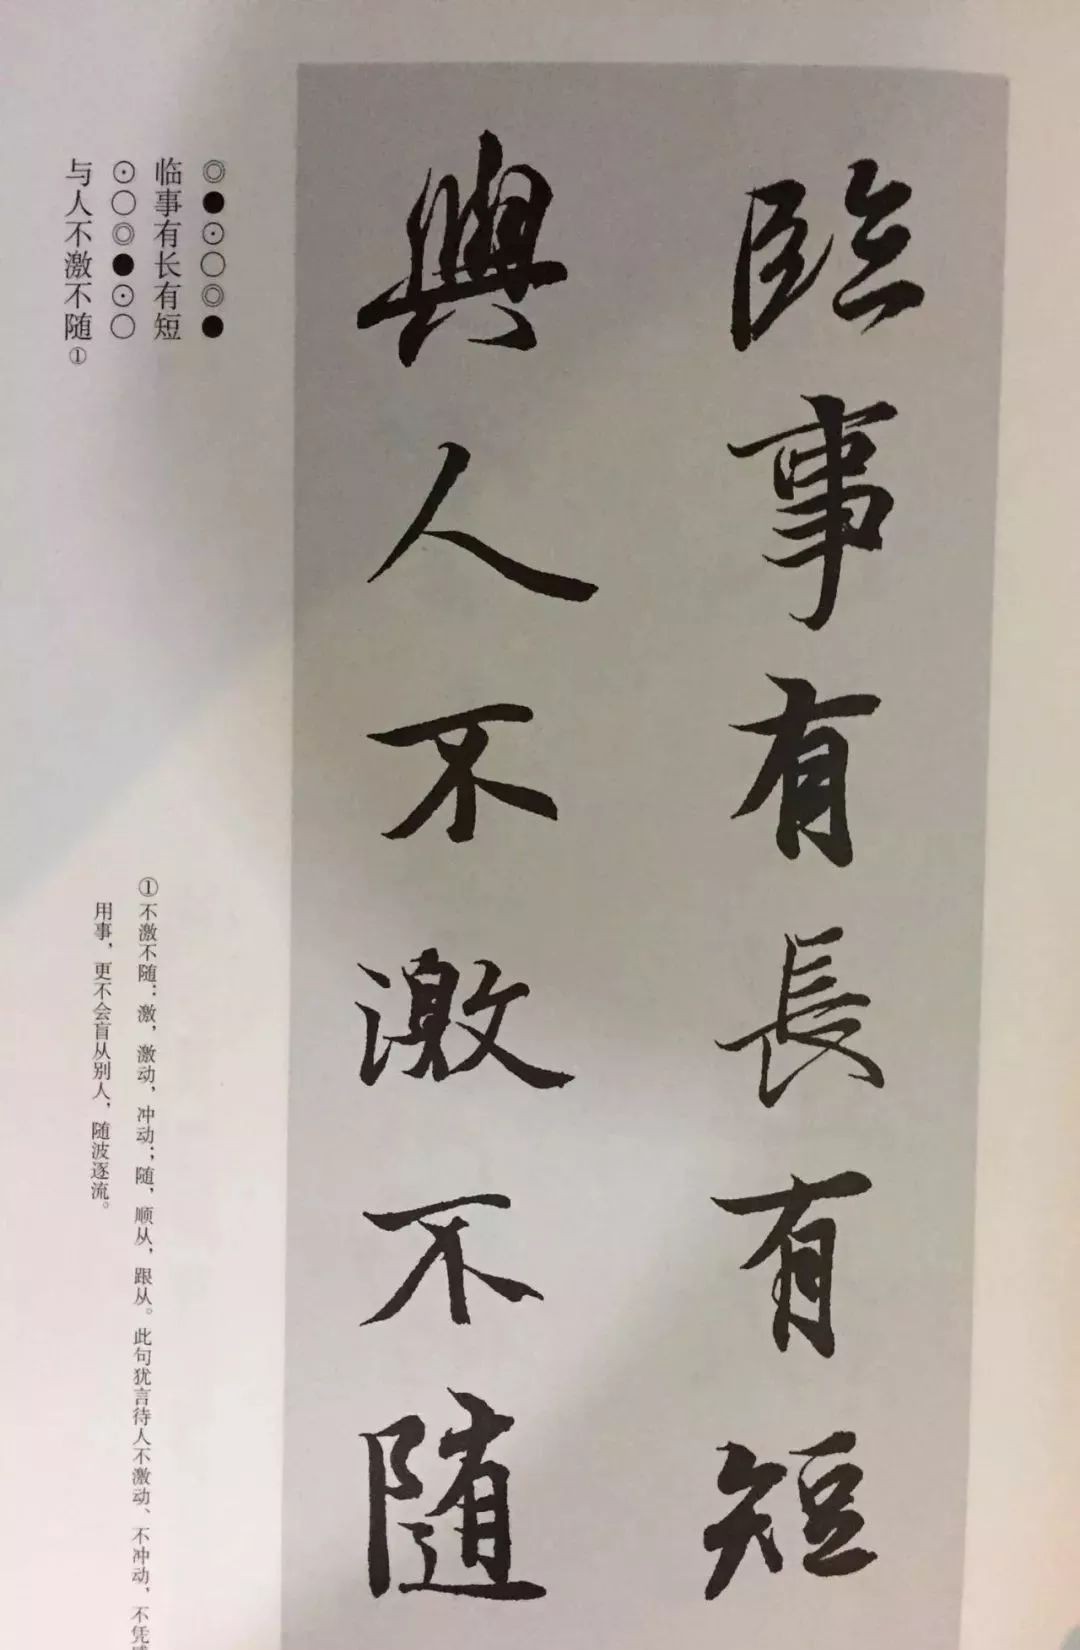 臨事有長有短
與人不激不隨
◎●⊙○◎●
临事有长有短
⊙○◎●⊙○
与人不激不随①
①不激不随：激，激动，冲动；随，顺从，跟从。此句犹言待人不激动、不冲动，不凭
用事，更不会盲从别人，随波逐流。